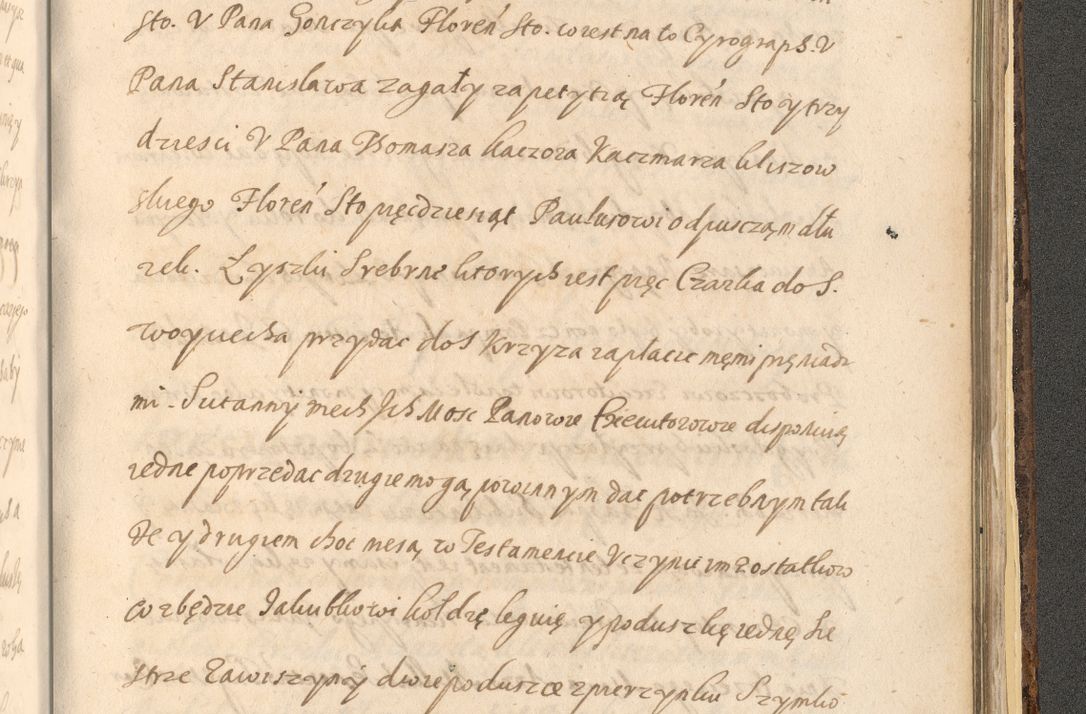 Sto. V Pana Gonczyka Floreń Sto. co iest na to Cyrograph. V
Pana Stanisława Zagały za petytią Floreń Sto y trzy
dziesci V Pana Thomasza kaczora Kaczmarza kliszow
skiego Floreń Sto pięcdziesiąt Paulusowi odpusczam dłu
zek. Łyszki Srebrne ktorych iest pięc Czarka do S.
Woyciecha przydac do S Krzyza zapłacic memi pięniadz
mi. Sutanny niech Ich Mosc Panowie Executorowie disponuią
iedne poprzedac drugie mogą powinnym dac potrzebnym tak
ze y drugiem choc niesą w Testamencie Vczynic im z ostatkow
co zbędzie Jakubkowi kołdrę legnię y poduszkę iednę Sie
strze Zawiszyny dwie podusce z pierzynki Szymko